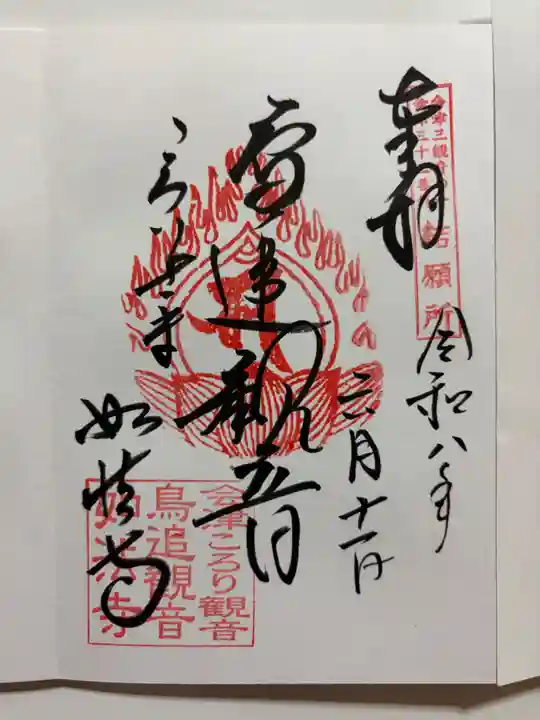 奉拝
会津三観音
会津三十三番
結願所
令和八年
六月十一日
鳥追観音
如法寺
会津ころり観音
鳥追観音
如法寺